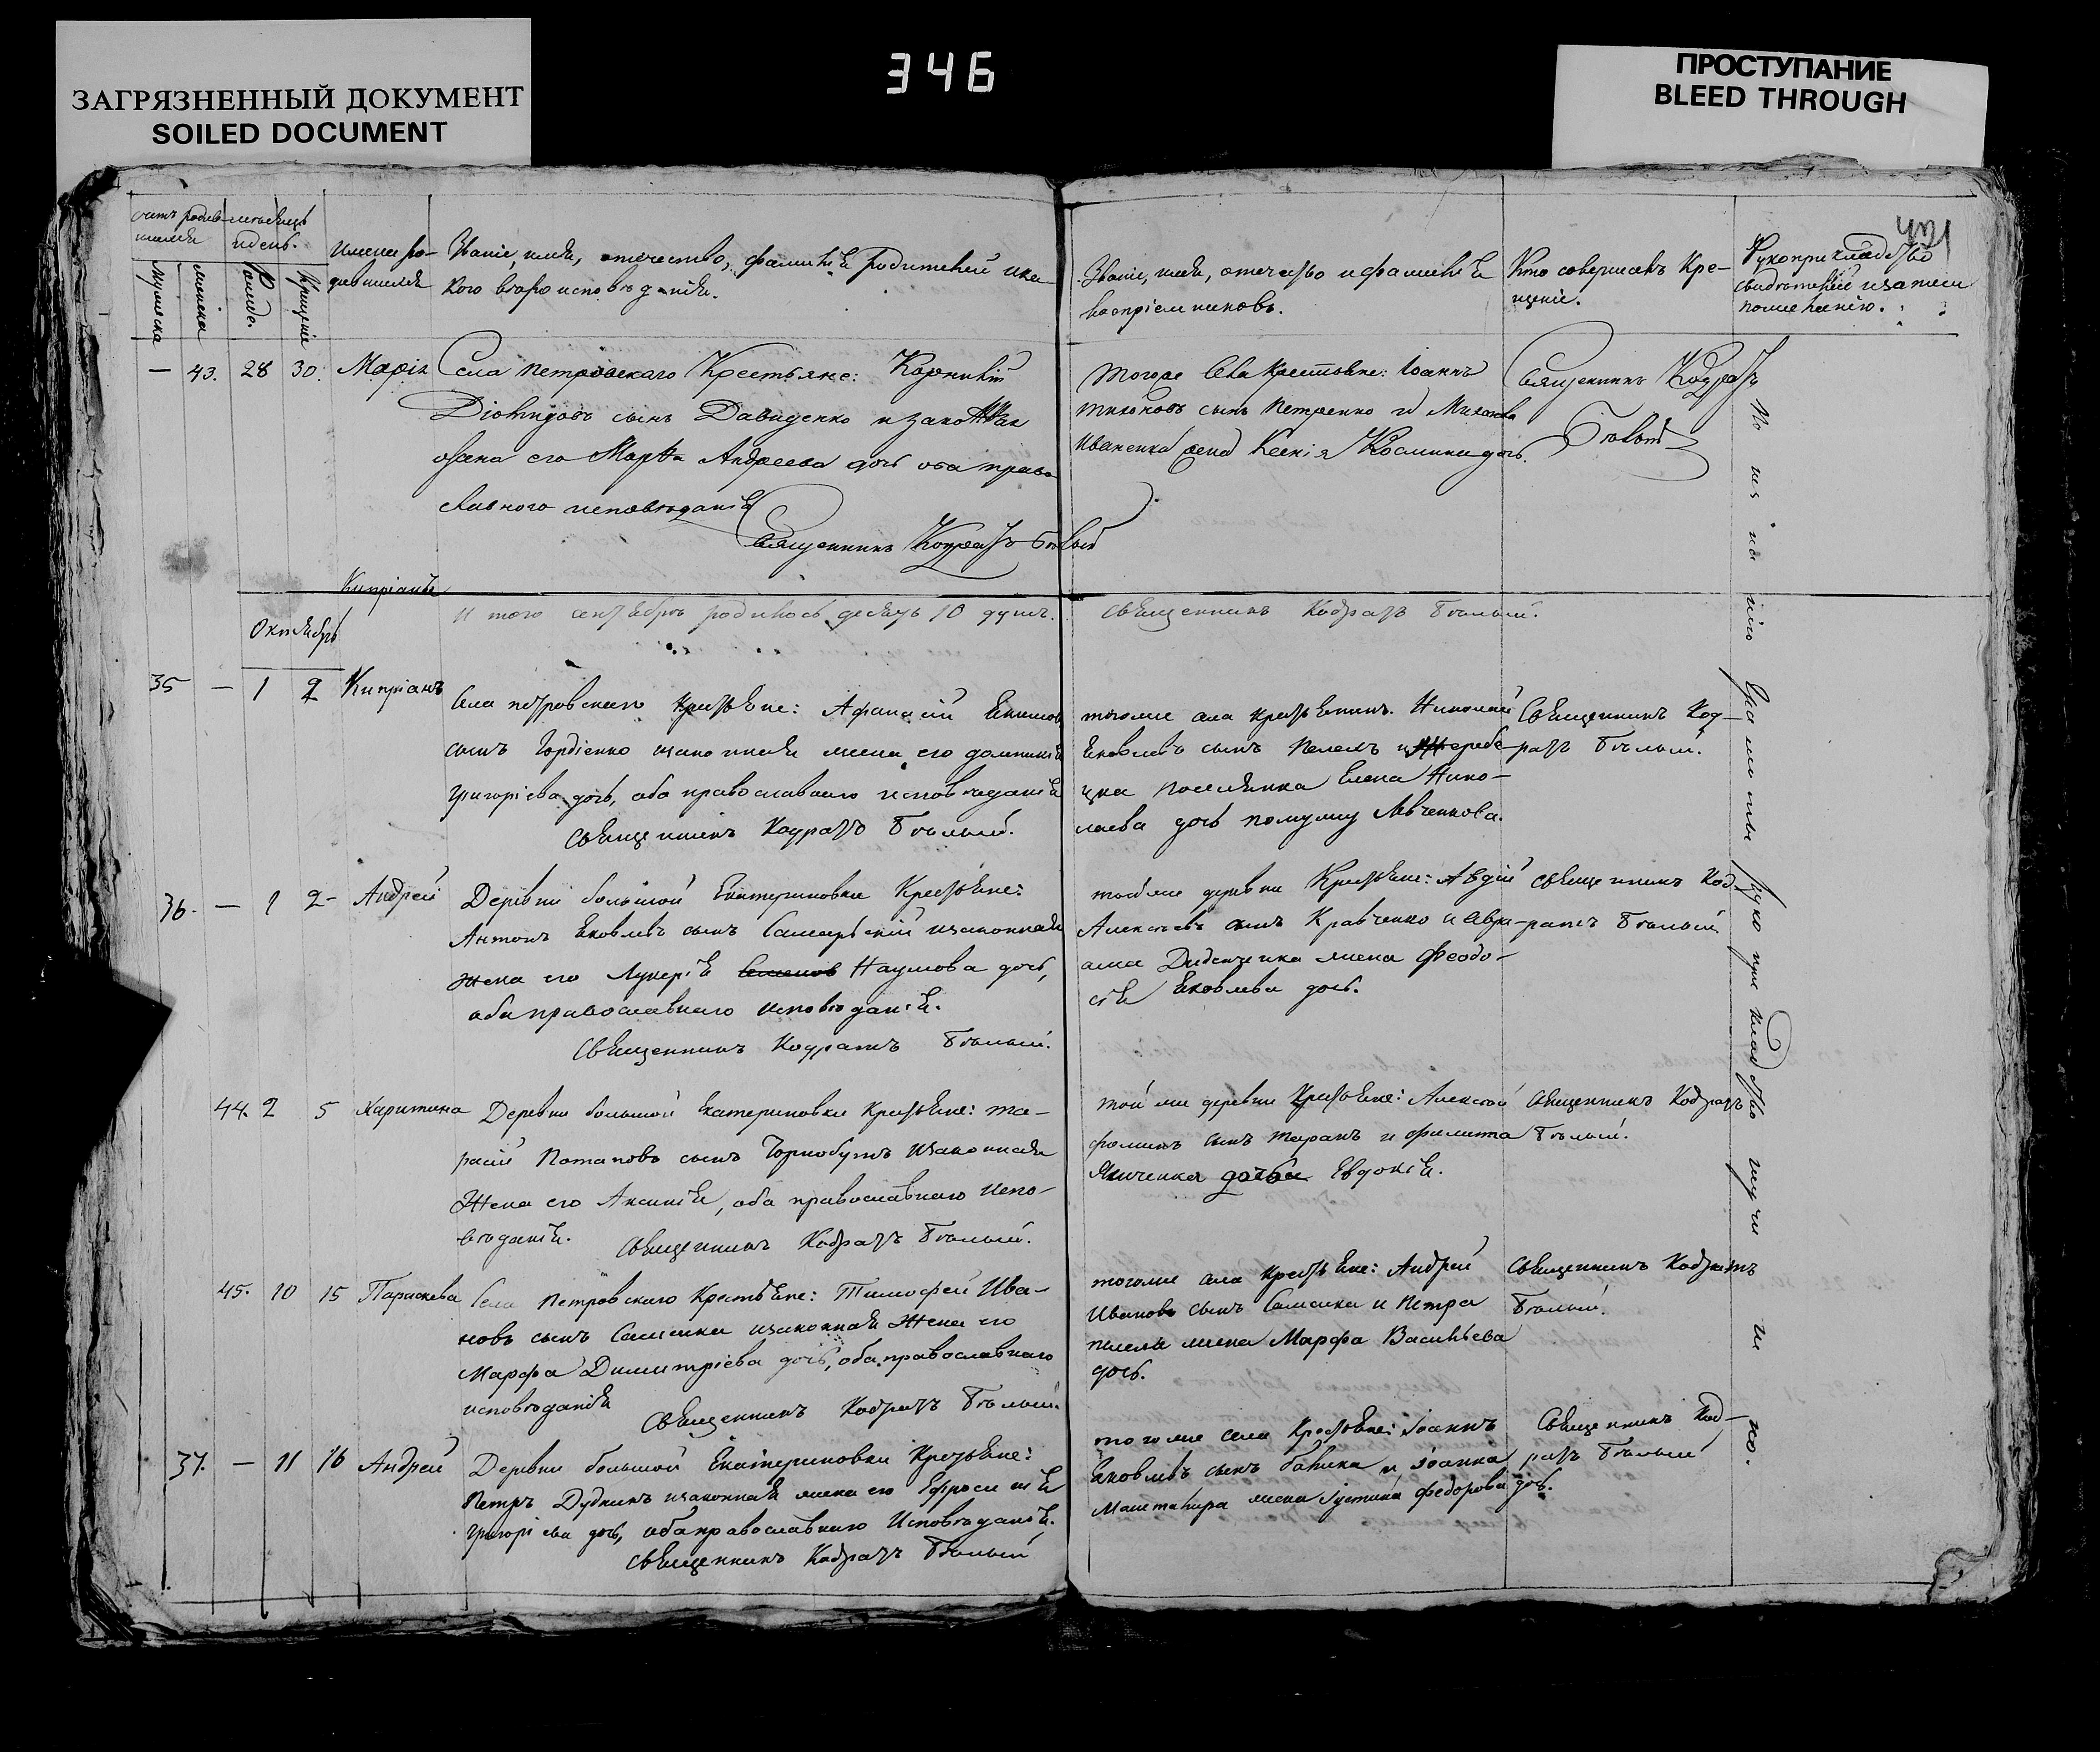 ЗАГРЯЗНЕННЫЙ ДОКУМЕНТ
SOILED DOCUMENT
346
ПРОСТУПАНИЕ
BLEED THROUGH
421
счетъ родив- мѣсяцъ
шихся и день.
мужеска
женска
рожде.
крещенiе
имена ро-
дившихся
Званіе, имя, отечество, фамилія родителей и ка-
кого вѣроисповѣданія.
Званіе, имя, отечество и фамилія
воспріемниковъ.
Кто совершалъ Кре-
щеніе.
Рукоприкладство
свидѣтелей записи
по желанію.
— 43. 28 30. Марія
Села Петровскаго Крестьяне: Корнилій
сынъ Давиденко и законная
жена его Марѳа Андреева дочь оба право
славного исповѣданія
Священникъ Кодратъ Бѣлый
тогоже села крестьяне: Іоаннъ
сынъ Петренко и
Иваненка жена Ксенія дочь.
Священникъ Кодратъ
Бѣлый
Кипріанъ
Октябрь
И того сентября родилось десять 10 душъ.
Священникъ Кодратъ Бѣлый.
35 — 1 2 Кипріанъ
Села Петровскаго крестьяне: Афанасій Екимовъ
сынъ Гордіенко и законная жена его Домникія
Григоріева дочь, оба православнаго исповѣданія
Священникъ Кодратъ Бѣлый.
тогоже села крестьянинъ Николай
Яковлевъ сынъ и жеребе-
цка поселянка Елена Нико-
лаева дочь по мужу Левченкова.
Священникъ Код-
ратъ Бѣлый.
36. — 1 2 Андрей
Деревни большой Екатериновки Крестьяне:
Антонъ Яковлевъ сынъ Самарскій и законная
жена его Лукерія Наумова дочь,
оба православнаго исповѣданія.
Священникъ Кодратъ Бѣлый.
тойже деревни Крестьяне: Авдій
Алексѣевъ сынъ Кравченко и Авра-
ама жена Феодо-
сія Яковлева дочь.
Священникъ Код-
ратъ Бѣлый
44. 2 5 Харитина
Деревни большой Екатериновки крестьяне: Та-
расій Потаповъ сынъ Чорнобукъ и законная
жена его Аксинія, оба православнаго испо-
вѣданія. Священникъ Кодратъ Бѣлый.
той же деревни крестьяне: Алексѣй
Фоминъ сынъ Таранъ и Филипа
дочь Евдокія.
Священникъ Кодратъ
Бѣлый.
45. 10 15 Параскева
Села Петровскаго Крестьяне: Тимофей Ива-
новъ сынъ и законная жена его
Марфа Димитріева дочь, оба православнаго
исповѣданія Священникъ Кодратъ Бѣлый.
тогоже села крестьяне: Андрей
Ивановъ сынъ и Петра
жена Марфа Васильева
дочь.
Священникъ Кодратъ
Бѣлый.
37. — 11 16 Андрей
Деревни большой Екатериновки Крестьяне:
Петръ Дудкинъ и законная жена его Ефросинія
Григоріева дочь, оба православнаго исповѣданія.
Священникъ Кодратъ Бѣлый
тогоже села крестьяне: Іоаннъ
Яковлевъ сынъ и Іоанна
жена Іустина Федорова дочь.
Священникъ Код-
ратъ Бѣлый